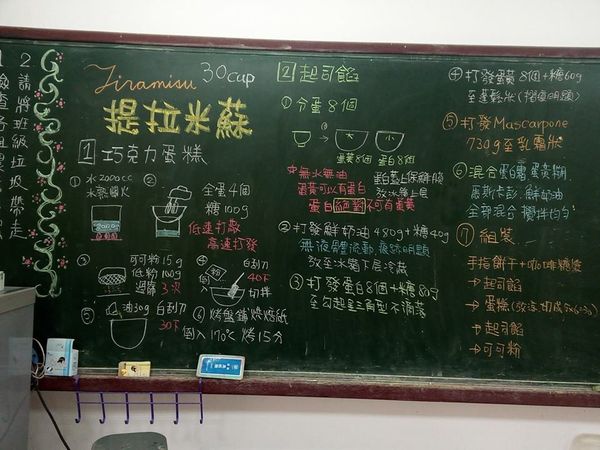 2 請將班級垃圾帶走
Tiramisu 30cup
提拉米蘇
1 巧克力蛋糕
① 水2000cc
水熱關火
②
全蛋4個
糖100g
低速打散
高速打發
③ 可可粉15g
低粉100g
過篩3次
④ 粉
白刮刀
40下
切拌
⑤ 油30g 白刮刀
30下
⑥ 烤盤鋪烘焙紙
倒入170℃ 烤15分
2 起司餡
① 分蛋8個
大 小
蛋黃8個 蛋白8個
*無水無油
蛋黃可以有蛋白
蛋白絕對不可有蛋黃
蛋白蓋上保鮮膜
放冰箱上層
② 打發鮮奶油480g+糖40g
無液體流動,痕跡明顯
放至冰箱下層冷藏
③ 打發蛋白8個+糖80g
至勾起呈三角型不滴落
④ 打發蛋黃8個+糖60g
至蓬鬆狀(摺痕明顯)
⑤ 打發Mascarpone
730g至乳霜狀
⑥ 混合蛋白霜.蛋黃糊.
馬斯卡彭.鮮奶油
全部混合 攪拌均勻
⑦ 組裝
手指餅干+咖啡糖漿
→起司餡
→蛋糕
→起司餡
→可可粉